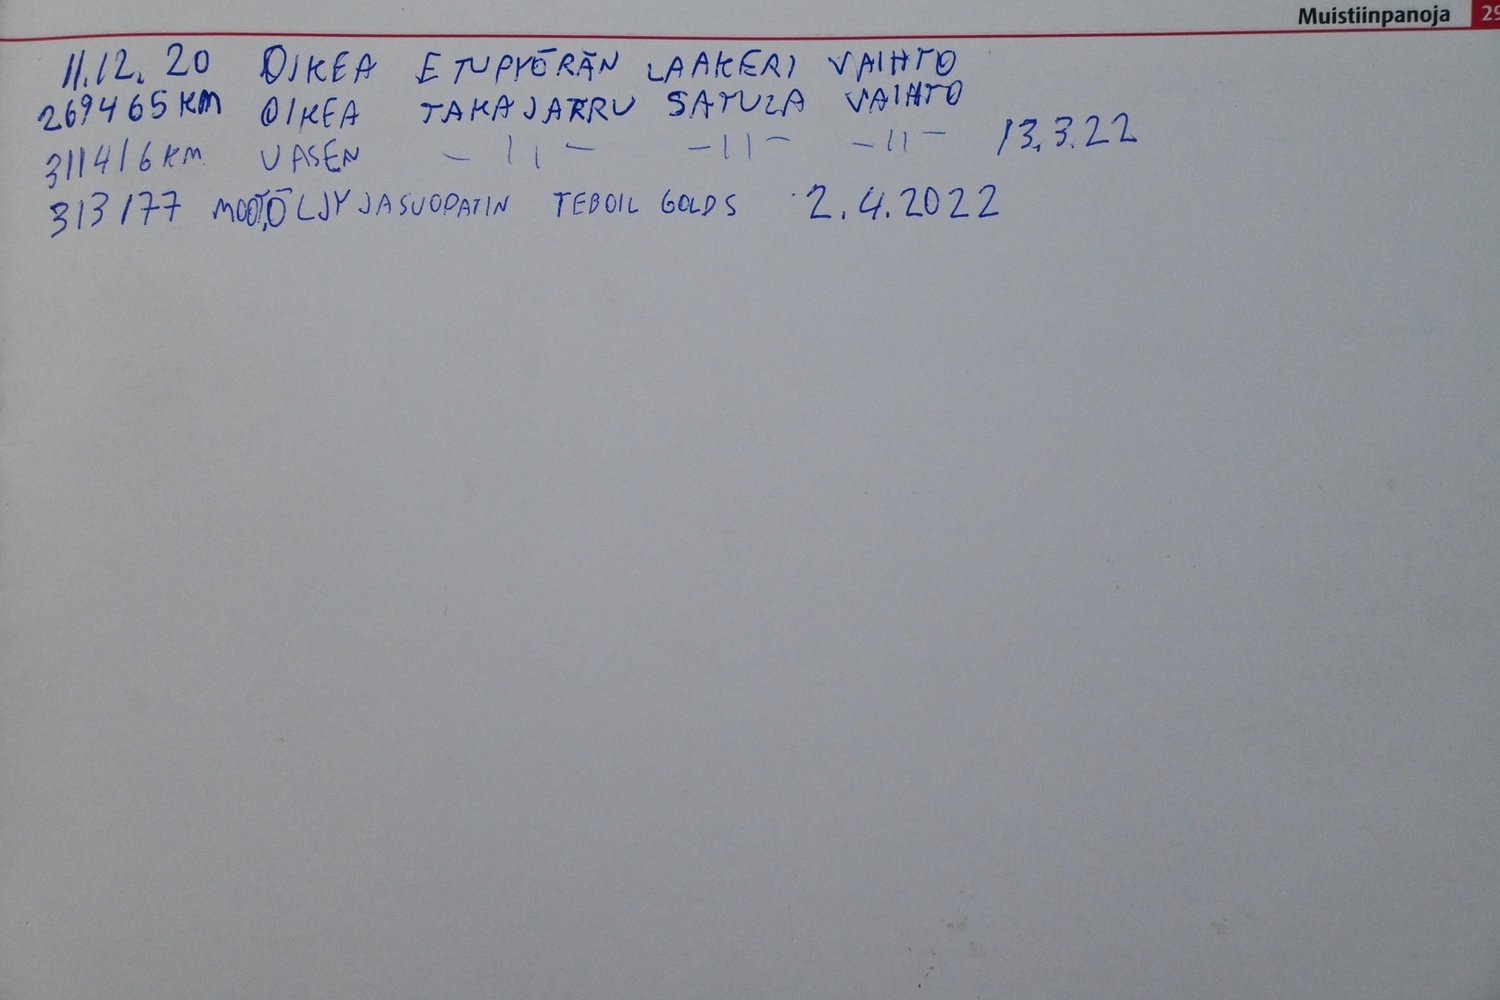 Muistiinpanoja 29
11.12.20 OIKEA ETUPYÖRÄN LAAKERI VAIHTO
269465 KM OIKEA TAKAJARRU SATULA VAIHTO
311416 KM VASEN -11- -11- -11- 13.3.22
313177 ÖLJY JA SUODATIN TEBOIL GOLD S 2.4.2022